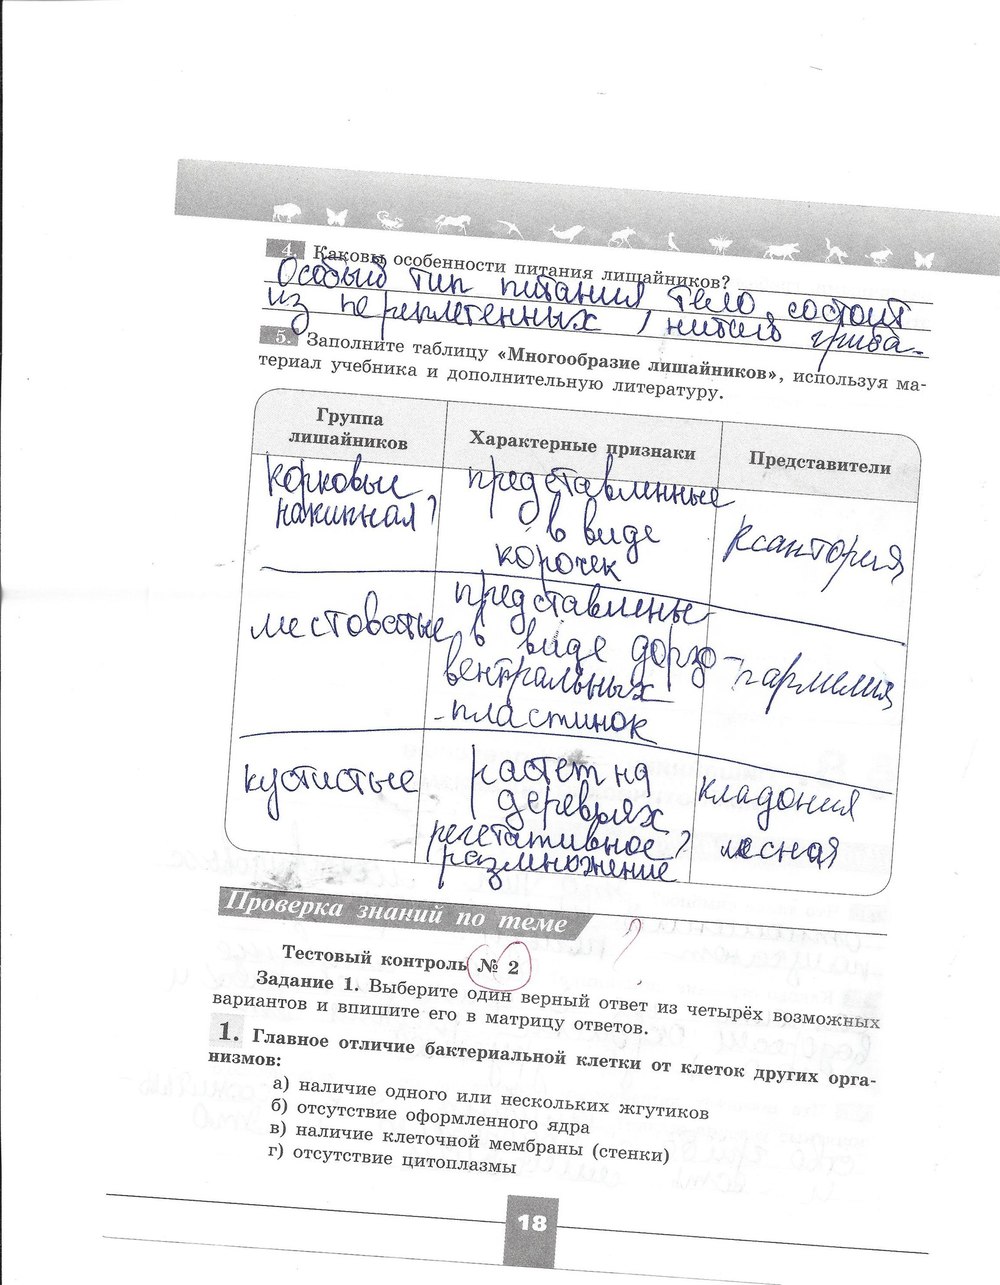 4. Каковы особенности питания лишайников?
Особый тип питания, тело состоит
из переплетенных, нитей гриба.
5. Заполните таблицу «Многообразие лишайников», используя ма-
териал учебника и дополнительную литературу.
Группа
лишайников
Характерные признаки
Представители
корковые
накипная
представленные
в виде
корочек
ксантория
листоватые
представлены
в виде дорзо-
вентральных
пластинок
пармелия
кустистые
растет на
деревьях
размножение
кладония
лесная
Проверка знаний по теме
Тестовый контроль № 2
Задание 1. Выберите один верный ответ из четырёх возможных
вариантов и впишите его в матрицу ответов.
1. Главное отличие бактериальной клетки от клеток других орга-
низмов:
а) наличие одного или нескольких жгутиков
б) отсутствие оформленного ядра
в) наличие клеточной мембраны (стенки)
г) отсутствие цитоплазмы
18